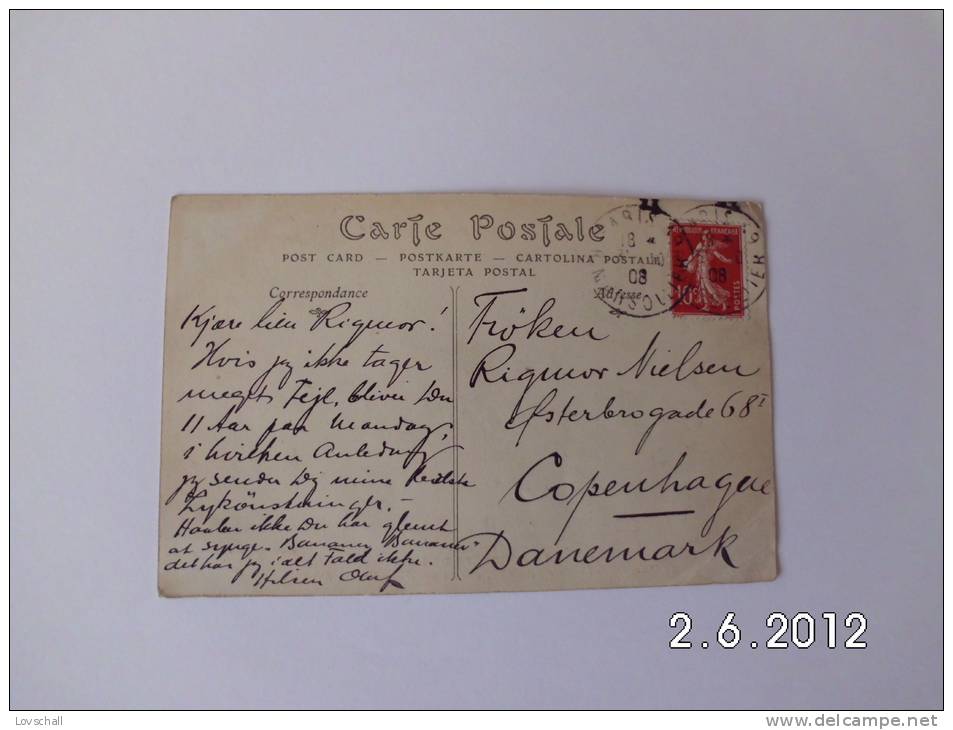 Carte Postale
POST CARD — POSTKARTE — CARTOLINA POSTALE
TARJETA POSTAL
Correspondance
Adresse
Kjære lien Rigmor!
Hvis jeg ikke tager
meget Fejl, bliver Du
11 Aar paa Mandag,
i hvilken Anledning
jeg sender Dig mine bedste
Lykönskninger. —
Haaber ikke Du har glemt
at synge "Bananer Bananer"
det har jeg i alt Fald ikke.
Hilsen Oluf
Fröken
Rigmor Nielsen
Østerbrogade 68 I
Copenhague
Danemark
PARIS
18
08
REPUBLIQUE FRANÇAISE
10c
POSTES
2.6.2012
Lovschall
www.delcampe.net